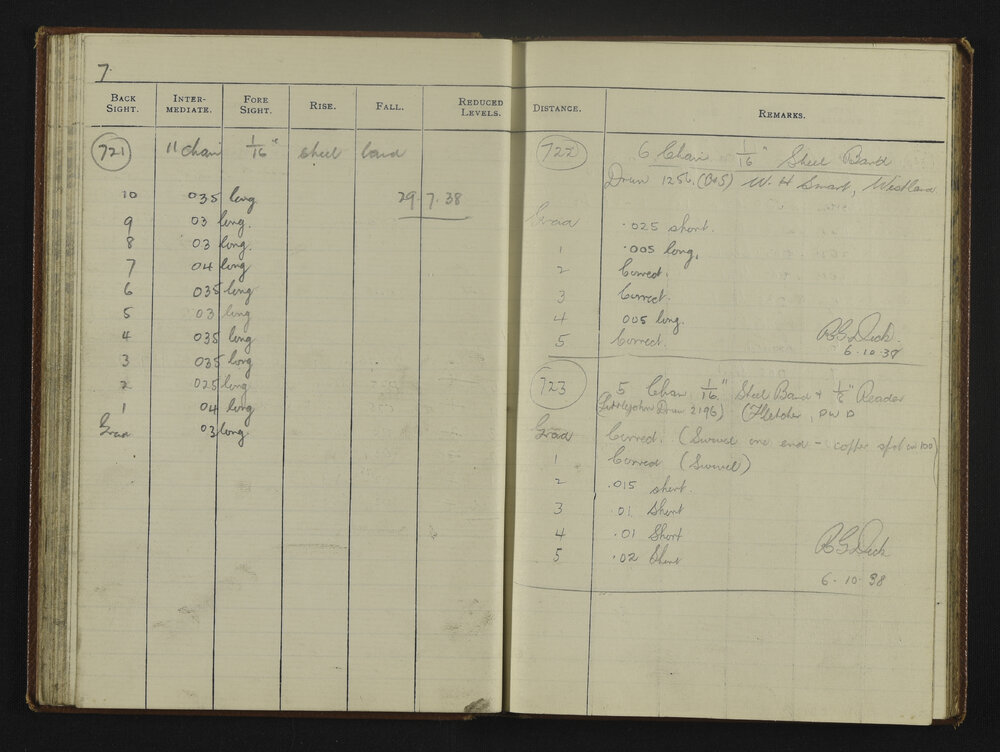 7.
BACK SIGHT. INTER-MEDIATE. FORE SIGHT. RISE. FALL. REDUCED LEVELS.
721 11 chain 1/16" steel band
10 035 long 29.7.38
9 03 long.
8 03 long.
7 04 long
6 035 long
5 03 long
4 035 long
3 035 long
2 025 long
1 04 long
Grad 03 long.
DISTANCE. REMARKS.
722 6 Chain 1/16" Steel Band
Drum 1256. W. H Smart, Westland
Grad .025 short.
1 .005 long.
2 Correct.
3 Correct.
4 005 long.
5 Correct.
R G Dick.
6.10.38
723 5 Chain 1/16" Steel Band + Reader
Littlejohn Drum 2196) (Fletcher, P W D
Grad Correct. (Swivel one end - copper spot on 100)
1 Correct (Swivel)
2 .015 short.
3 .01 Short
4 .01 Short
5 .02 Short
R G Dick
6-10-38